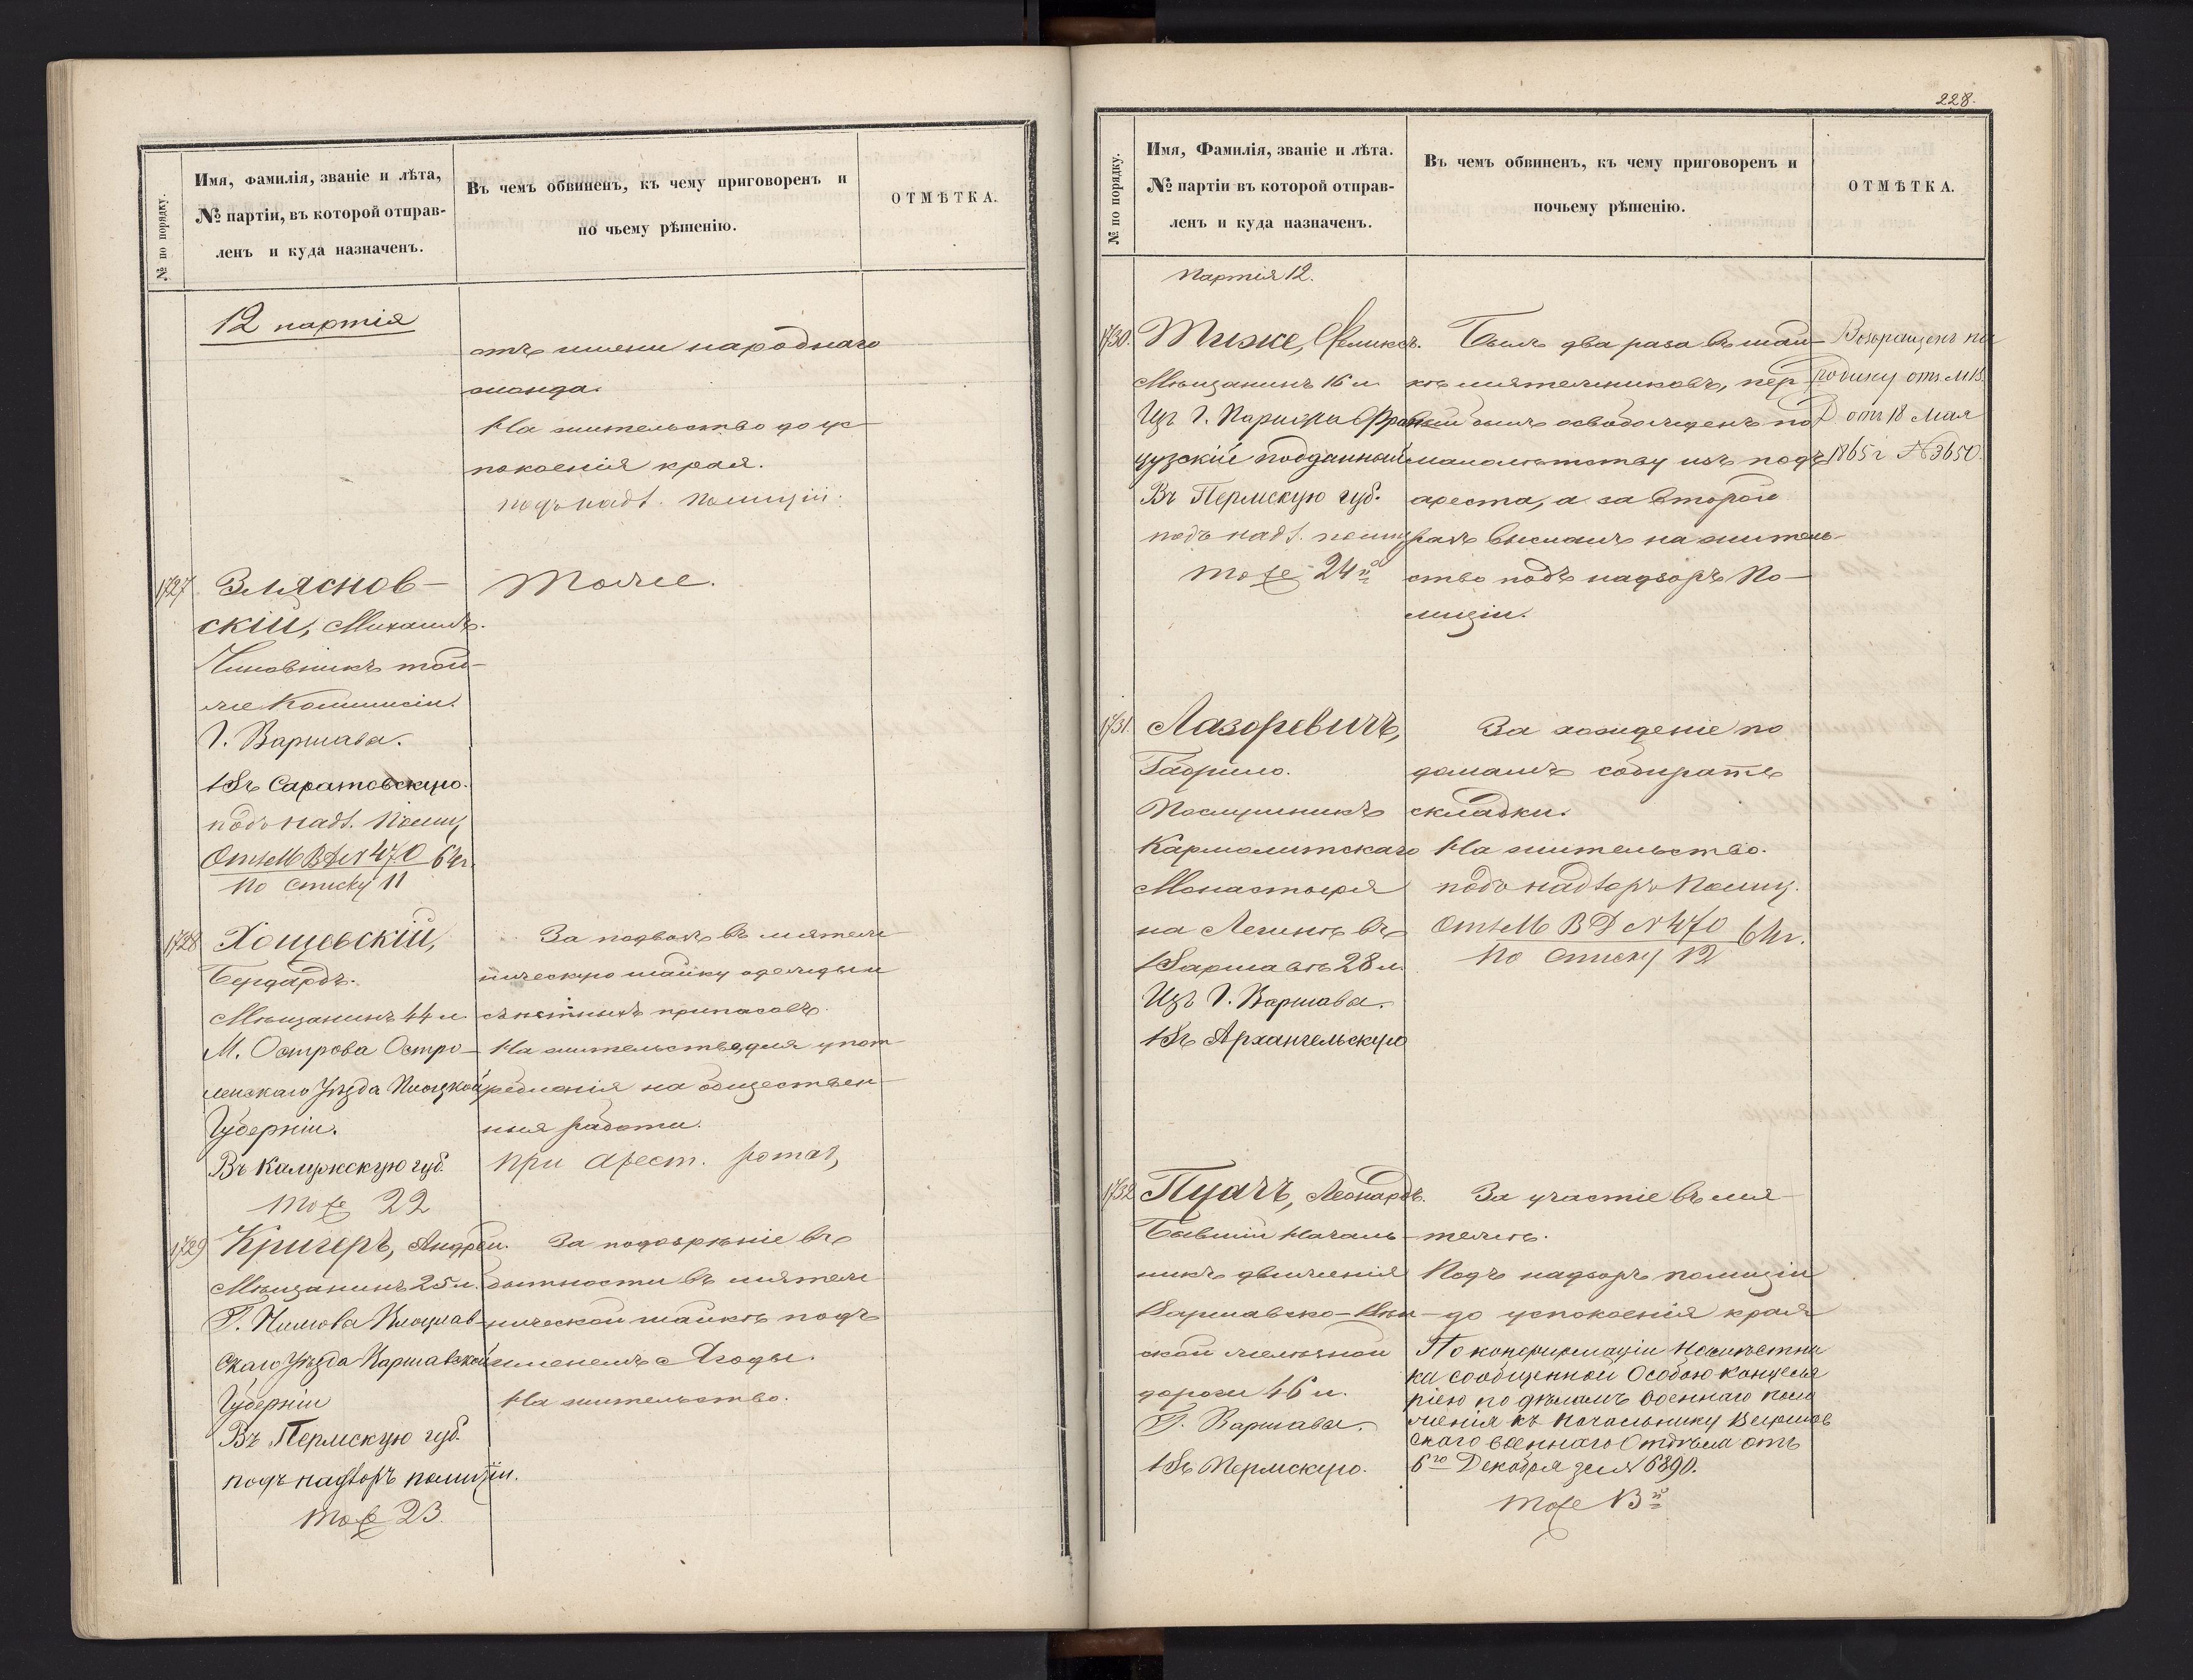 № по порядку.
Имя, фамилія, званіе и лѣта,
№ партіи, въ которой отправ-
ленъ и куда назначенъ.
Въ чемъ обвиненъ, къ чему приговоренъ и
по чьему рѣшенію.
ОТМѢТКА.
12 партія
отъ имени народнаго
жонда.
На жительство до ус-
покоенія края.
подъ надз. полиціи.
1727
Зляснов-
скій, Михаилъ.
Чиновникъ той-
же Коммисіи.
Г. Варшава.
Въ Саратовскую.
подъ надз. Полиц
От М В Д № 470 64 г.
По списку 11
Тоже.
1728
Хощевскій,
Мѣщанинъ 44 л
М. Острова Остро-
ленскаго Уѣзда Плоцкой
Губерніи.
Въ Калужскую губ.
тоже 22
За подвозъ въ мятеж
ническую шайку одежды и
съѣстныхъ припасовъ.
На жительство, для упот-
ребленія на обществен-
ныя работы.
При Арест. ротах,
1729
Кригеръ, Андрей.
Мѣщанинъ 25 л.
скаго Уѣзда Варшавской
Губерніи
Въ Пермскую губ.
подъ надзоръ полиціи.
тоже 23.
За подозрѣніе въ
бытности въ мятеж
нической шайкѣ подъ
именемъ Ягоды.
На жительство.
228.
№ по порядку.
Имя, Фамилія, званіе и лѣта.
№ партіи въ которой отправ-
ленъ и куда назначенъ.
Въ чемъ обвиненъ, къ чему приговоренъ и
почьему рѣшенію.
ОТМѢТКА.
Партія 12.
1730.
Тиже, Феликсъ.
Мѣщанинъ 16 л
Изъ Г. Парижа Фран
цузскій подданный
Въ Пермскую губ.
подъ надз. полиц
тоже 24й
Былъ два раза въ шай-
кѣ мятежниковъ, пер-
вый былъ освобожденъ по
малолѣтству изъ подъ
ареста, а за второй
разъ высланъ на житель-
ство подъ надзоръ По-
лиціи.
Возвращенъ на
родину отъ М.В.
Д. отъ 18 Мая
1865 г № 3650.
1731.
Лазоревичъ,
Габріло.
Послушникъ
Кармолитскаго
Монастыря
на Лешнѣ въ
Варшавѣ 28 л.
Изъ Г. Варшава.
Въ Архангельскую
За хожденіе по
домамъ собирать
складки.
На жительство.
подъ надзоръ Полиц.
От М В Д № 470 64 г.
По списку 12
1732
Пцачъ, Леонардъ.
Бывшій Началь-
никъ движенія
Варшавско-Вѣн-
ской желѣзной
дороги 46 л.
Г. Варшавы.
Въ Пермскую.
За участіе въ мя-
тежѣ.
Подъ надзоръ полиціи
до успокоенія края
По конфирмаціи Намѣстни
ка сообщенной Особою Канцеля
ріею по дѣламъ военнаго поло
женія къ Начальнику Варшав
скаго военнаго Отдѣла отъ
6го Декабря за № 6890.
тоже 13й